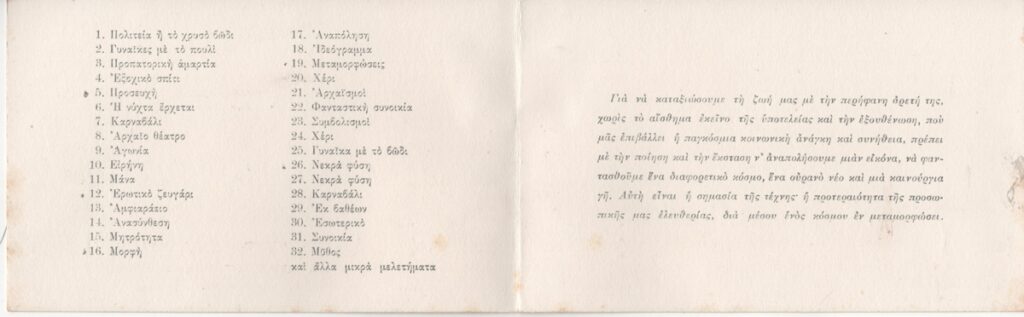 1. Πολιτεία ἢ τὸ χρυσὸ βῶδι
2. Γυναῖκες μὲ τὸ πουλί
3. Προπατορικὴ ἁμαρτία
4. Ἐξοχικὸ σπίτι
5. Προσευχὴ
6. Ἡ νύχτα ἔρχεται
7. Καρναβάλι
8. Ἀρχαῖο θέατρο
9. Ἀγωνία
10. Εἰρήνη
11. Μάνα
12. Ἐρωτικὸ ζευγάρι
13. Ἀμφιαράειο
14. Ἀνασύνθεση
15. Μητρότητα
16. Μορφὴ
17. Ἀναπόληση
18. Ἰδεόγραμμα
19. Μεταμορφώσεις
20. Χέρι
21. Ἀρχαϊσμοὶ
22. Φανταστικὴ συνοικία
23. Συμβολισμοὶ
24. Χέρι
25. Γυναῖκα μὲ τὸ βῶδι
26. Νεκρὰ φύση
27. Νεκρὰ φύση
28. Καρναβάλι
29. Ἐκ βαθέων
30. Ἐσωτερικὸ
31. Συνοικία
32. Μῦθος
καὶ ἄλλα μικρὰ μελετήματα
Γιὰ νὰ καταξιώσουμε τὴ ζωή μας μὲ τὴν περήφανη ἀρετή της,
χωρὶς τὸ αἴσθημα ἐκεῖνο τῆς ὑποτελείας καὶ τὴν ἐξουθένωση, ποὺ
μᾶς ἐπιβάλλει ἡ παγκόσμια κοινωνικὴ ἀνάγκη καὶ συνήθεια, πρέπει
μὲ τὴν ποίηση καὶ τὴν ἔκσταση ν' ἀναπολήσουμε μιὰν εἰκόνα, νὰ φαν-
τασθοῦμε ἕνα διαφορετικὸ κόσμο, ἕνα οὐρανὸ νέο καὶ μιὰ καινούργια
γῆ. Αὐτὴ εἶναι ἡ σημασία τῆς τέχνης· ἡ προτεραιότητα τῆς προσω-
πικῆς μας ἐλευθερίας, διὰ μέσου ἑνὸς κόσμου ἐν μεταμορφώσει.